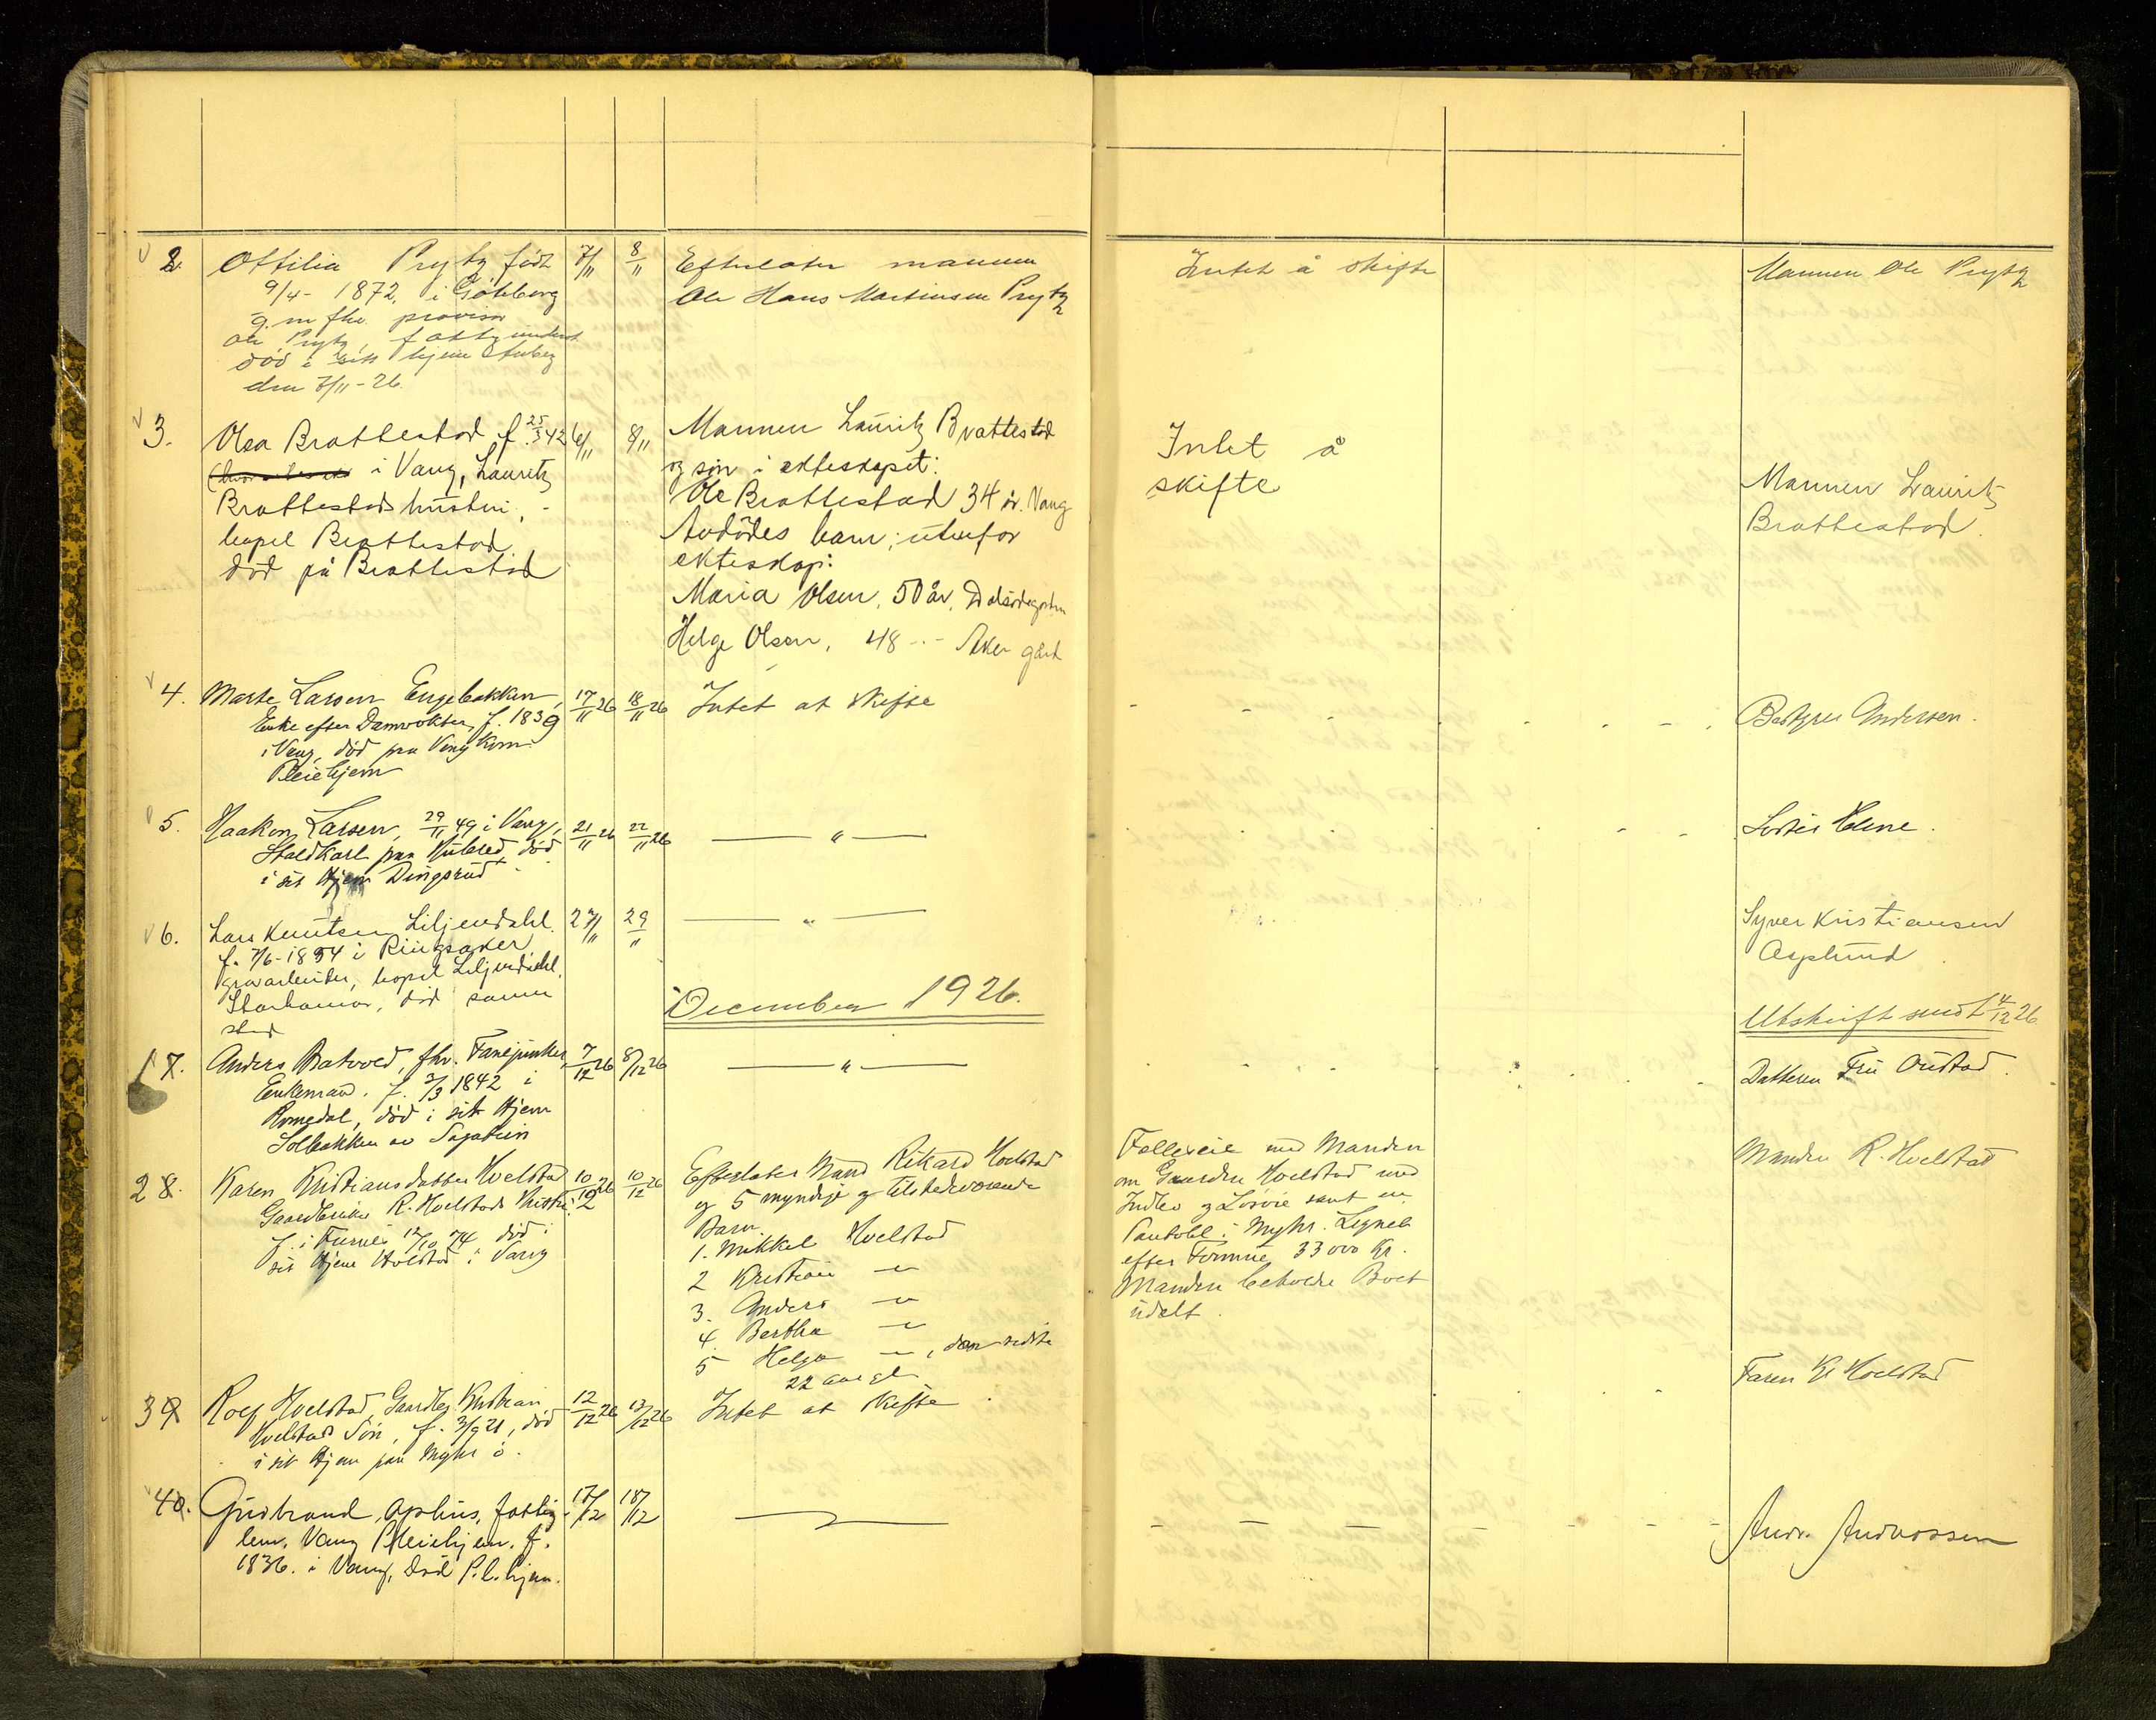 2. Ottilia Prytz født 7/11 8/11 Efterlater mannen Intet å skifte Mannen Ole Prytz
9/4- 1872, i Göteborg Ole Hans Martinsen Prytz
g. m fhv. provisor
Ole Prytz,
død i sitt hjem
den 7/11-26.
3. Olea Brattestad f. 25/3 42 6/11 8/11 Mannen Lauritz Brattestad Intet å
i Vang, Lauritz og søn i ekteskapet: skifte Mannen Lauritz
Brattestads hustru, Ole Brattestad 34 år. Vang Brattestad.
bopel Brattestad. Avdödes barn utenfor
død på Brattestad ekteskap:
Maria Olsen, 50 år,
Helge Olsen, 48 -"- Aker gård
4. Marte Larsen Engebakken, 17/11 26 18/11 26 Intet at skifte - - - - - Bestyrer Andersen.
Enke efter Damvokter, f. 1839
i Vang, död paa Vang Kom.
Pleiehjem
5. Haakon Larsen, 29/11 49 i Vang, 21/11 26 22/11 26 — " — Søster Helene.
Staldkarl paa död
i sit Hjem Dingsrud
6. Lars Knutsen Liljendahl. 27/11 29/11 — " — Syver Kristiansen
f. 7/6-1854 i Ringsaker Asplund
bopel Liljendahl.
Storhamar, död samme December 1926.
sted Utskrift sendt 4/12 26
1 7. Anders Batvold, fhv. Fanejunker, 7/12 26 8/12 26 — " — Datteren Fru Oustad.
Enkemand. f. 3/3 1842 i
Romedal, död i sit Hjem
Solbakken av
2 8. Karen Kristiansdatter Hoelstad 10/12 26 10/12 26 Efterlater Mand Rikard Hoelstad Fælleseie med Manden Manden R. Hoelstad
Gaardbruker R. Hoelstads Hustru. og 5 myndige og tilstedeværende om Gaarden Hoelstad med
f. i Furnes 12/10 74 död i Barn Indbo og Løsøre samt en
sit Hjem Hoelstad i Vang 1. Mikkel Hoelstad i Myhr. Lignet
2 Kristian — " efter Formue 33000 Kr.
3. Anders — " Manden beholder Boet
4. Bertha — " udelt.
5 Helga — ", den sidste
22 aar gl.
3 9 Rolf Hoelstad, Gaardbr. Kristian 12/12 26 13/12 26 Intet at skifte Faren Kr Hoelstad
Hoelstads Sön, f. 3/9 21, död
i sit Hjem paa Myhr ö.
4 10. Gudbrand Aphus, fattig- 17/12 18/12 — " — - - - - - Andr. Andreassen
lem, Vang Pleiehjem. f.
1836. i Vang, död P.l.hjem.